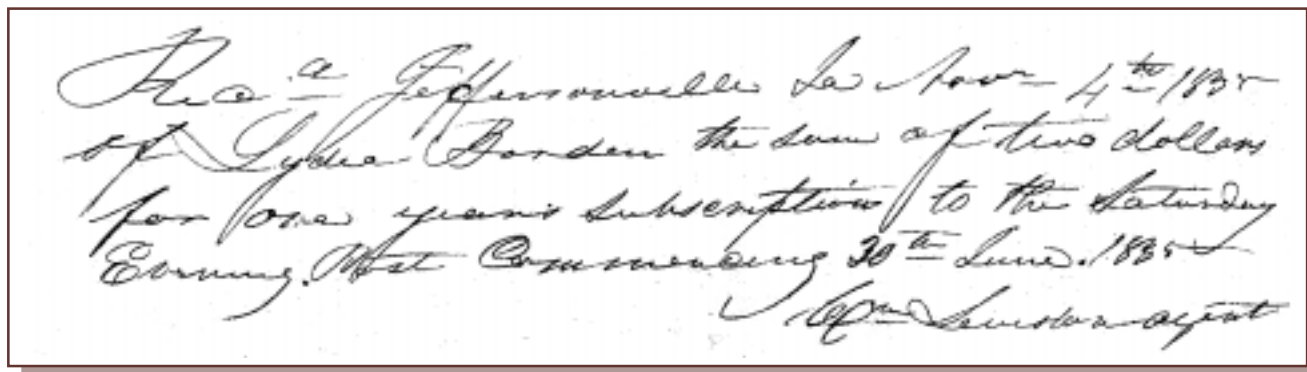 Recd Jeffersonville Ia Novr 4th 1835
of Lydia Borden the sum of two dollars
for one years subscription to the Saturday
Evening Post Commencing 20th June 1835
Wm agent